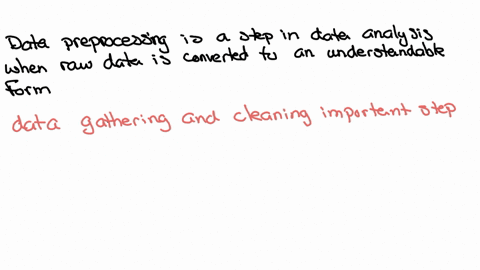 Data preprocessing is a step in data analysis
when raw data is converted to an understandable
form
data gathering and cleaning important step